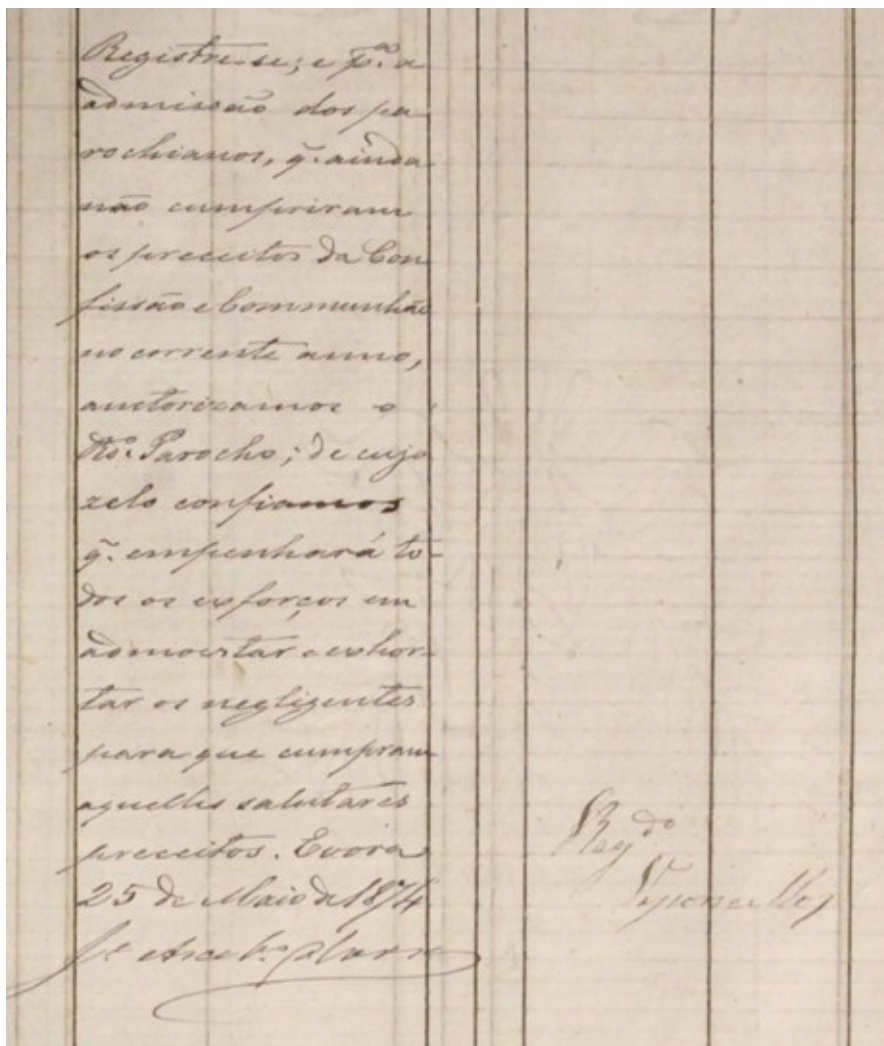 Registre-se; e pª. a
admissão dos pa
rochianos, q̃. ainda
não cumpriram
os preceitos da Con
fissão e Communhão
no corrente anno,
auctorizamos o
Rdo. Parocho; de cujo
zelo confiamos
q̃. empenhará to-
dos os esforços em
admoestar e exhor-
tar os negligentes
para que cumpram
aquelles salutares
preceitos. Evora
25 de Maio de 1874
Regdo
Vasconcellos